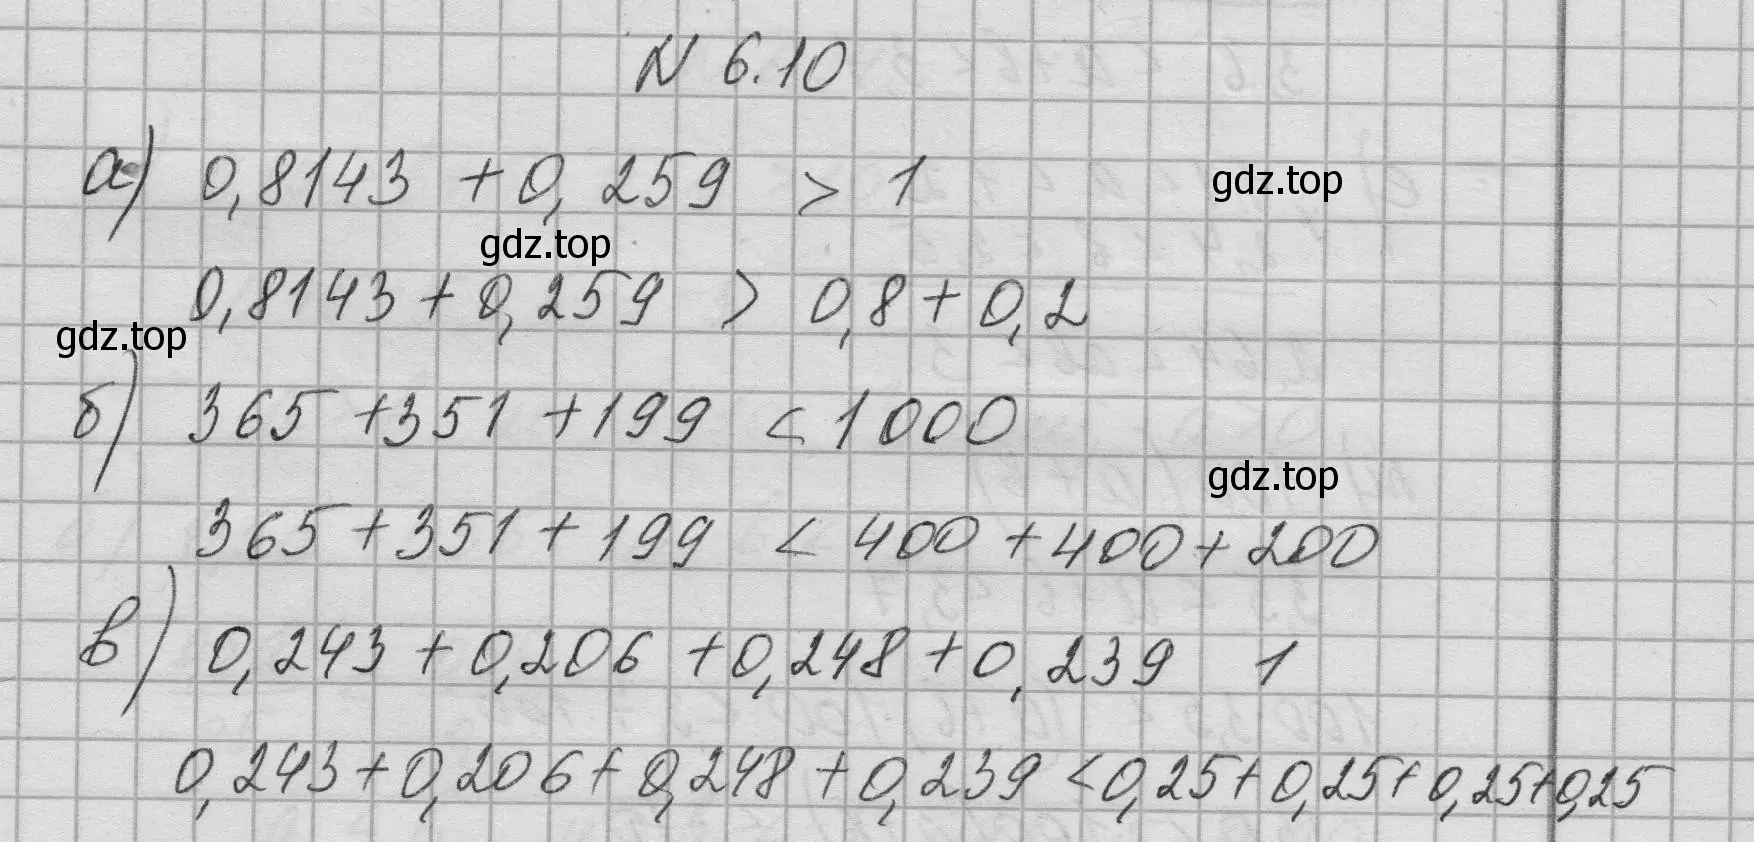 N 6.10
а) 0,8143 + 0,259 > 1
gdz.top
gdz.top
0,8143 + 0,259 > 0,8 + 0,2
gdz.top
б) 365 + 351 + 199 < 1000
gdz.top
365 + 351 + 199 < 400 + 400 + 200
в) 0,243 + 0,206 + 0,248 + 0,239 1
0,243 + 0,206 + 0,248 + 0,239 < 0,25 + 0,25 + 0,25 + 0,25